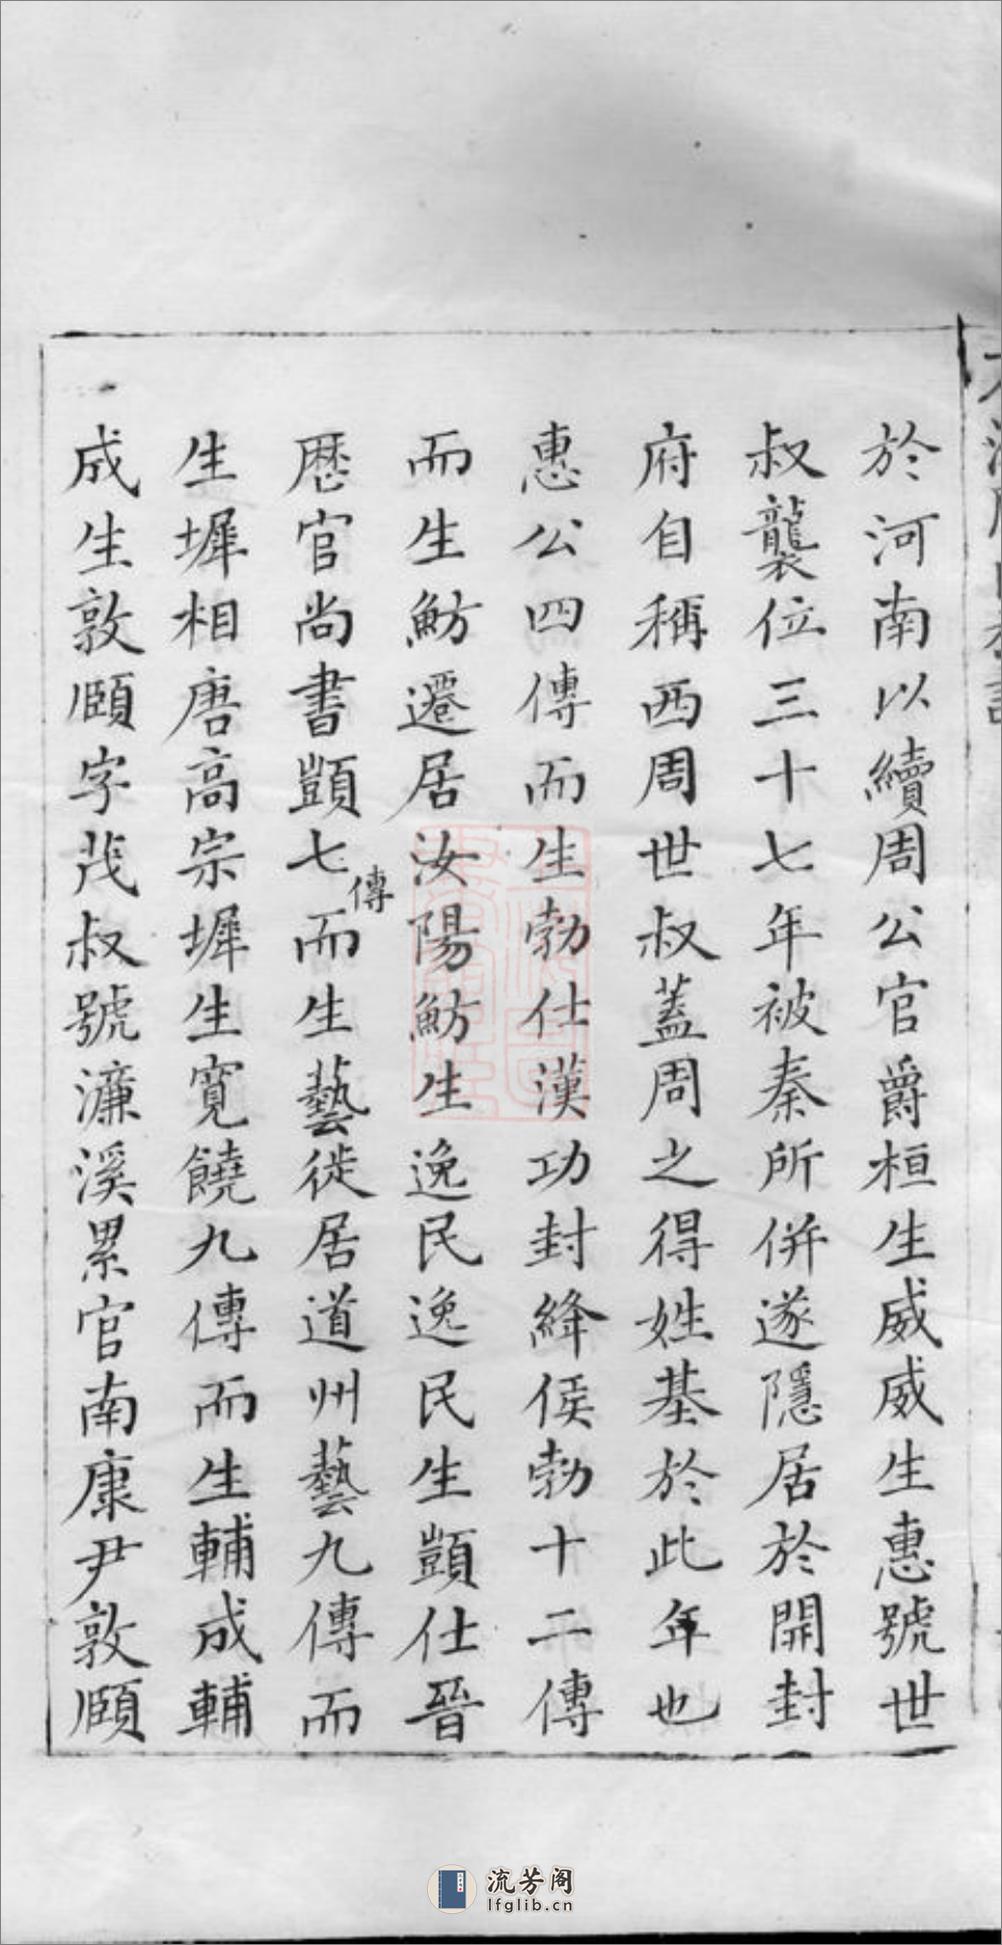 於河南以續周公官爵桓生威威生惠號世
叔襲位三十七年被秦所併遂隱居於開封
府自稱西周世叔蓋周之得姓基於此年也
惠公四傳而生勃仕漢功封絳侯勃十二傳
而生魴遷居汝陽魴生逸民逸民生顗仕晉
歷官尚書顗七傳而生藝徙居道州藝九傳而
生墀相唐高宗墀生寬饒九傳而生輔成輔
成生敦頤字茂叔號濂溪累官南康尹敦頤
流芳阁
lfglib.cn